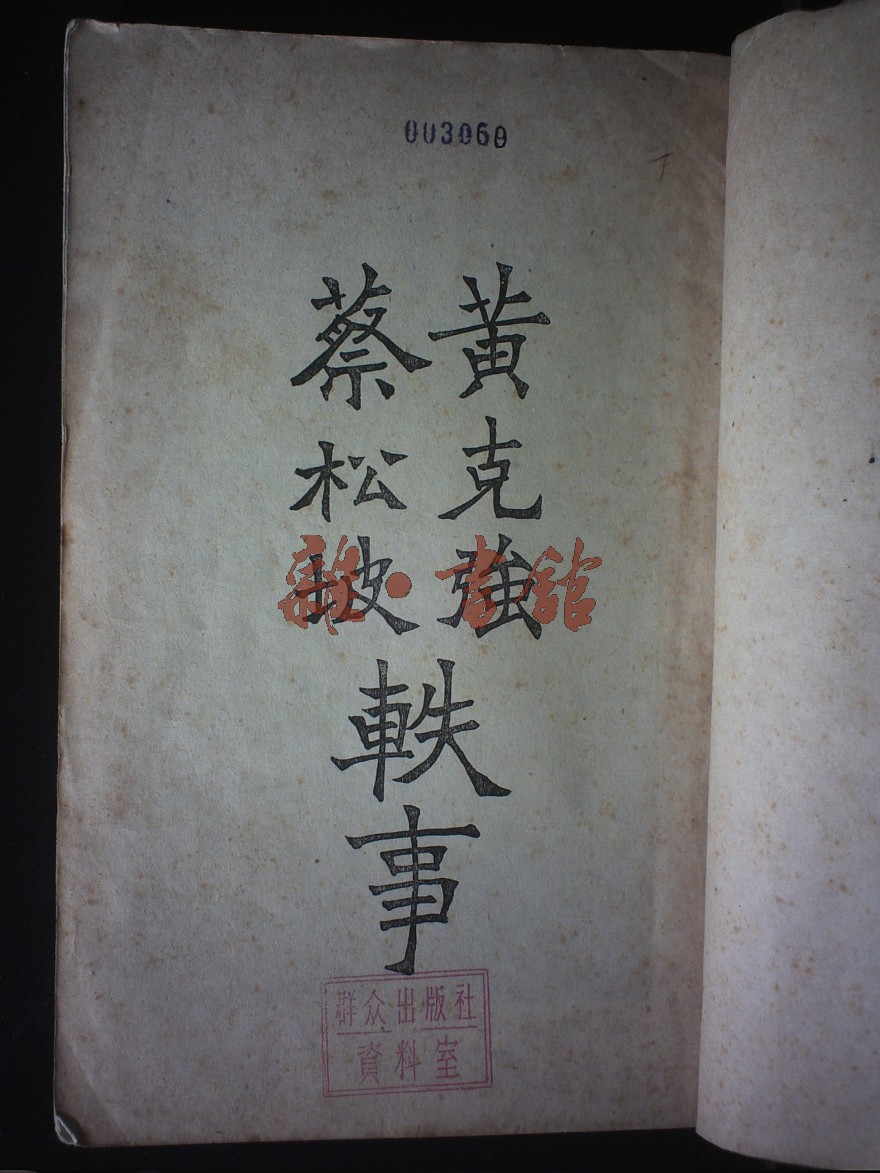 003060
黃克強
蔡松坡
軼事
雜·書館
群众出版社
資料室